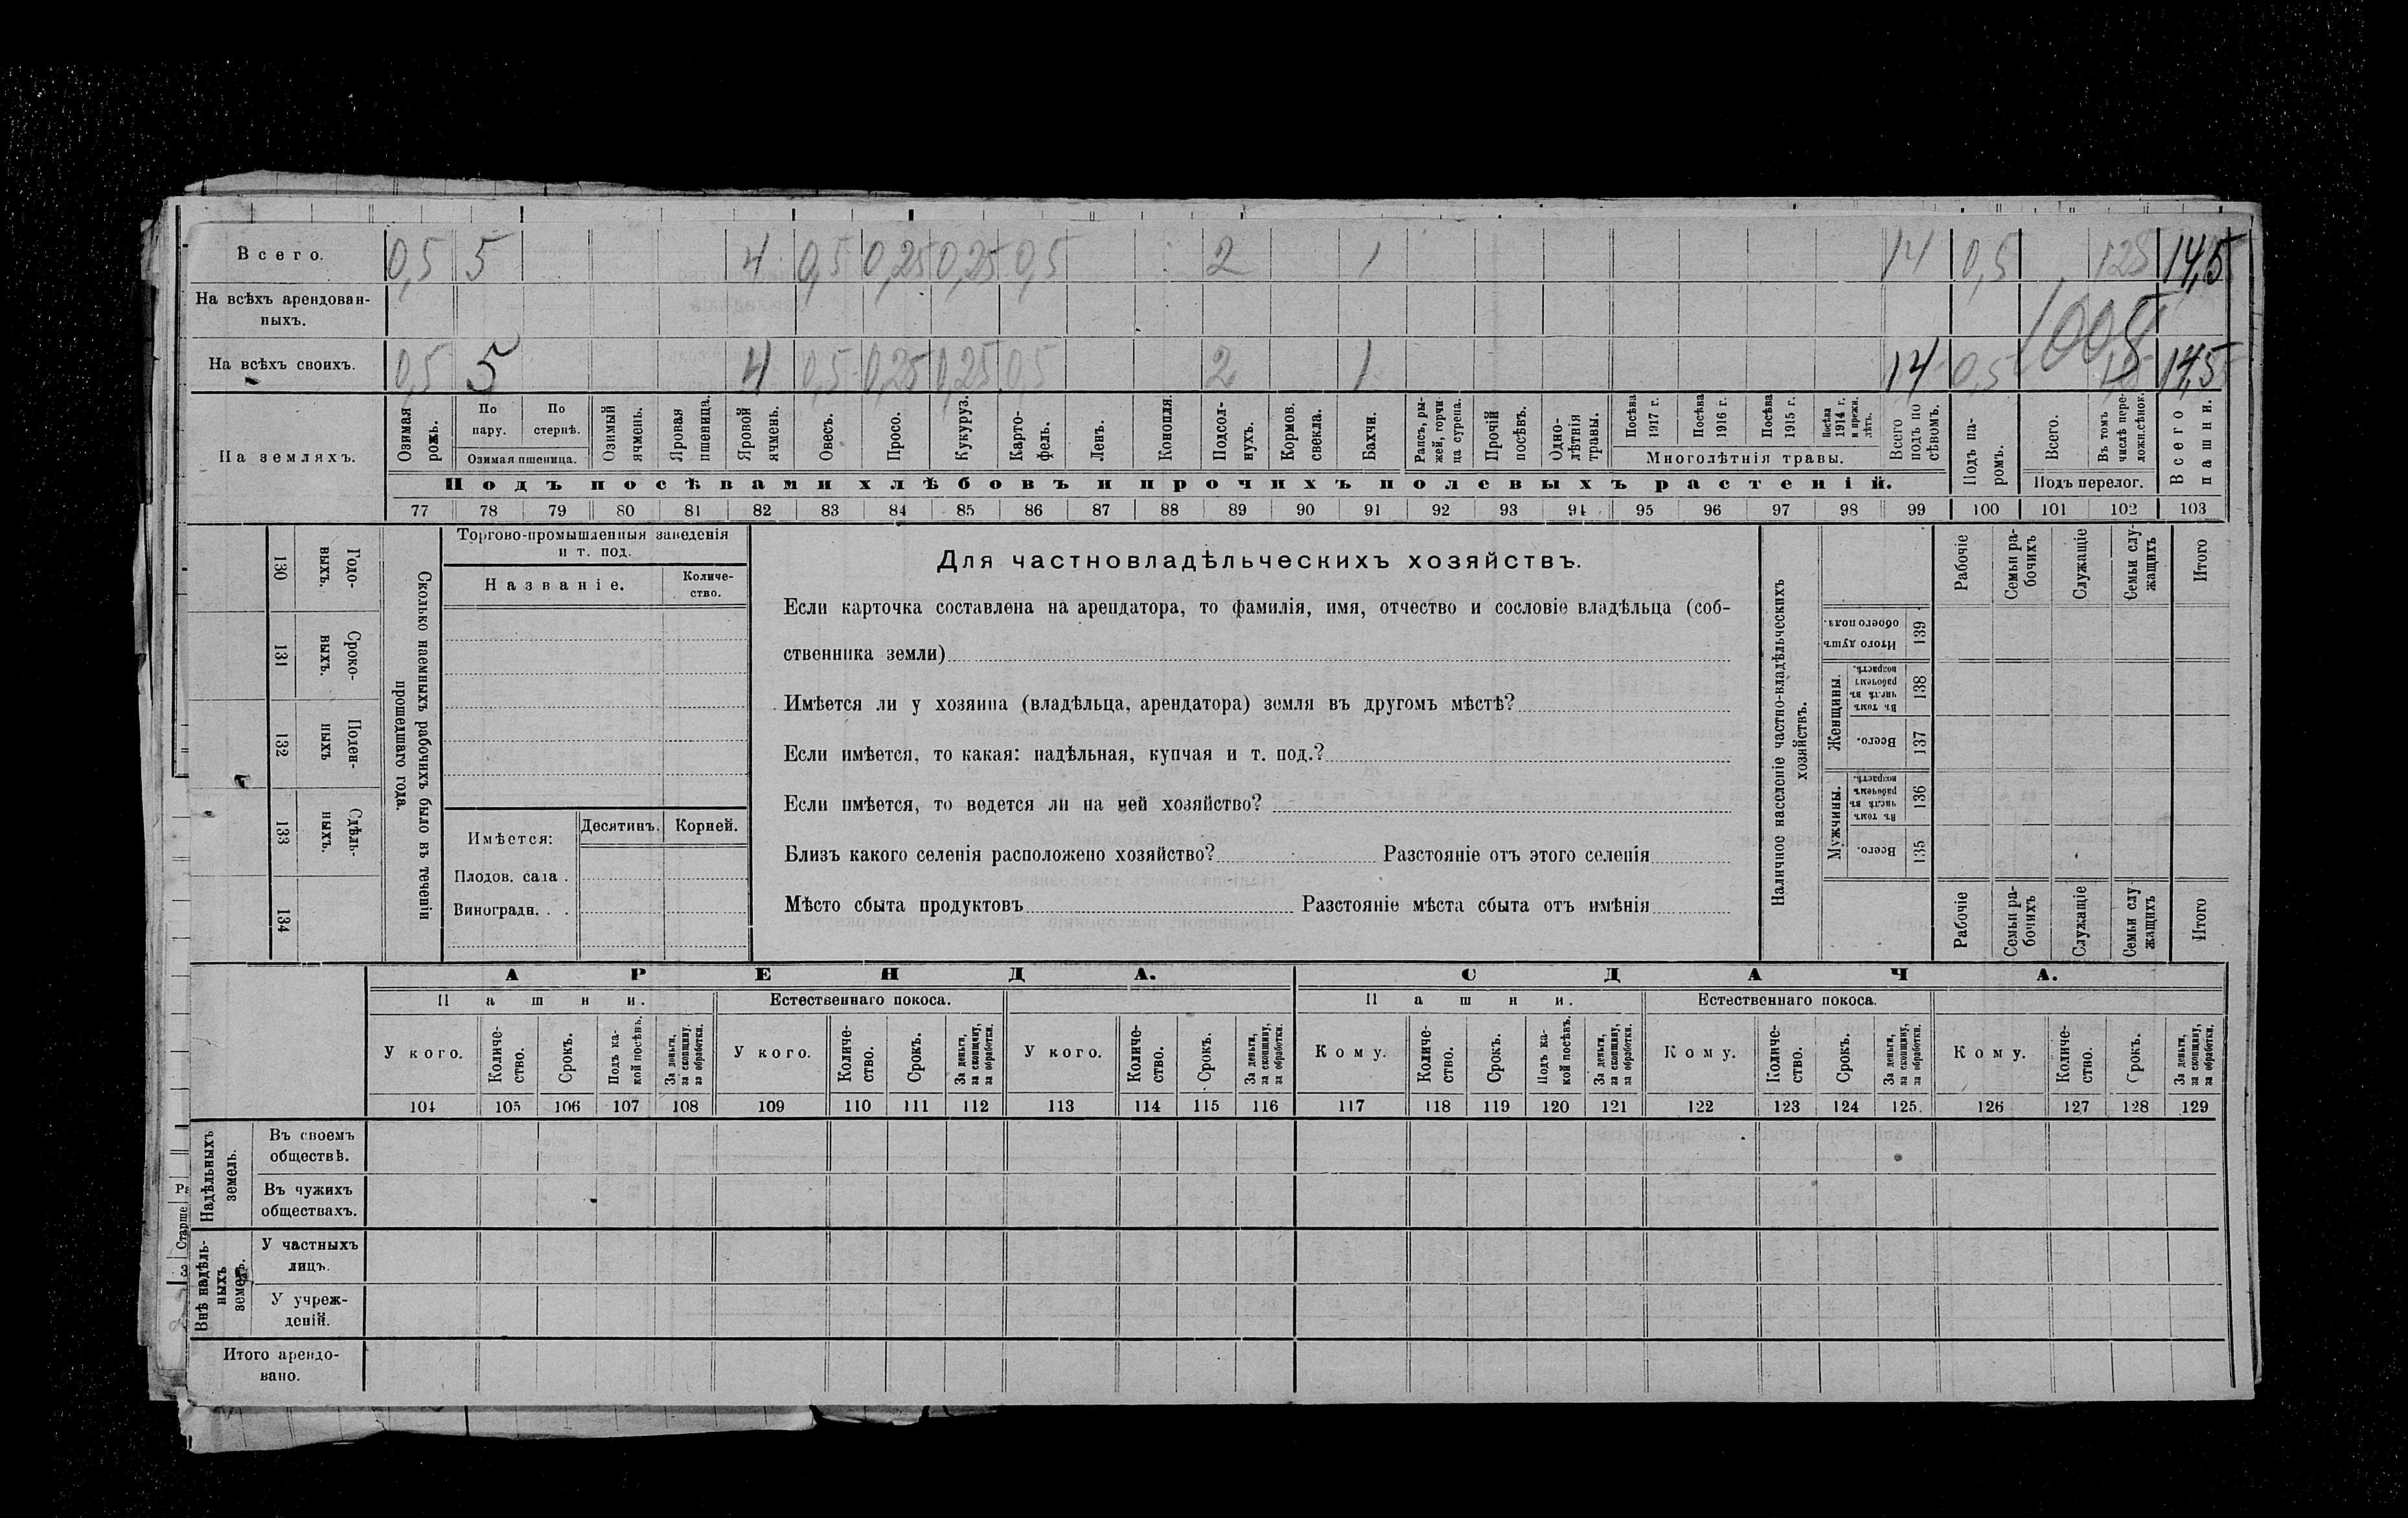 Всего. 0,5 5 4 0,5 0,25 0,25 0,5 2 1 14 0,5 125 14,5
На всѣхъ арендован-
ныхъ.
1005
На всѣхъ своихъ. 0,5 5 4 0,5 0,25 0,25 0,5 2 1 14 0,5 14,5
На земляхъ.
Озимая рожь.
По пару.
По стернѣ.
Озимая пшеница.
Озимый ячмень.
Яровая пшеница.
Яровой ячмень.
Овесъ.
Просо.
Кукуруз.
Карто-
фель.
Ленъ.
Конопля.
Подсол-
нухъ.
Кормов. свекла.
Бахчи.
Рапсъ, ры-
жей, горчи-
ца сурепа.
Прочій посѣвъ.
Одно-
лѣтнія травы.
Посѣва 1917 г.
Посѣва 1916 г.
Посѣва 1915 г.
Посѣва 1914 г. и прежн. лѣтъ.
Многолѣтнія травы.
Всего подъ по
сѣвомъ.
Подъ па-
ромъ.
Всего.
Въ томъ числѣ пере-
ложн.сѣнок.
Подъ перелог.
Всего пашни.
Подъ посѣвами хлѣбовъ и прочихъ полевыхъ растеній.
77 78 79 80 81 82 83 84 85 86 87 88 89 90 91 92 93 94 95 96 97 98 99 100 101 102 103
130 Годо-
выхъ.
131 Сроко-
выхъ.
132 Поден-
ныхъ
133 Сдѣль-
ныхъ.
134
Сколько наемныхъ рабочихъ было въ теченіи
прошедшаго года.
Торгово-промышленныя заведенія
и т. под.
Названіе.
Количе-
ство.
Имѣется:
Десятинъ.
Корней.
Плодов. сада .
Виноградн. . .
Для частновладѣльческихъ хозяйствъ.
Если карточка составлена на арендатора, то фамилія, имя, отчество и сословіе владѣльца (соб-
ственника земли)
Имѣется ли у хозяина (владѣльца, арендатора) земля въ другомъ мѣстѣ?
Если имѣется, то какая: надѣльная, купчая и т. под.?
Если имѣется, то ведется ли на ней хозяйство?
Близъ какого селенія расположено хозяйство? Разстояніе отъ этого селенія
Мѣсто сбыта продуктовъ Разстояніе мѣста сбыта отъ имѣнія
Наличное населеніе частно-владѣльческихъ
хозяйствъ.
Рабочіе
Семьи ра-
бочихъ
Служащіе
Семьи слу-
жащихъ
Итого
Итого душъ обоего пола. 139
Женщины.
Въ томъ числѣ въ рабочемъ возрастѣ. 138
Всего. 137
Мужчины.
Въ томъ числѣ въ рабочемъ возрастѣ. 136
Всего. 135
Рабочіе
Семьи ра-
бочихъ
Служащіе
Семьи слу-
жащихъ
Итого
АРЕНДА. СДАЧА.
Пашни. Естественнаго покоса. Пашни. Естественнаго покоса.
У кого.
Количе-
ство.
Срокъ.
Подъ ка-
кой посѣвъ.
За деньги, за скопщину, за обработки.
У кого.
Количе-
ство.
Срокъ.
За деньги, за скопщину, за обработки.
У кого.
Количе-
ство.
Срокъ.
За деньги, за скопщину, за обработки.
Кому.
Количе-
ство.
Срокъ.
Подъ ка-
кой посѣвъ.
За деньги, за скопщину, за обработки.
Кому.
Количе-
ство.
Срокъ.
За деньги, за скопщину, за обработки.
Кому.
Количе-
ство.
Срокъ.
За деньги, за скопщину, за обработки.
104 105 106 107 108 109 110 111 112 113 114 115 116 117 118 119 120 121 122 123 124 125. 126 127 128 129
Надѣльныхъ земель.
Въ своемъ
обществѣ.
Въ чужихъ
обществахъ.
Внѣ надѣль-
ныхъ земель.
У частныхъ
лицъ.
У учреж-
деній.
Итого арендо-
вано.
Старше